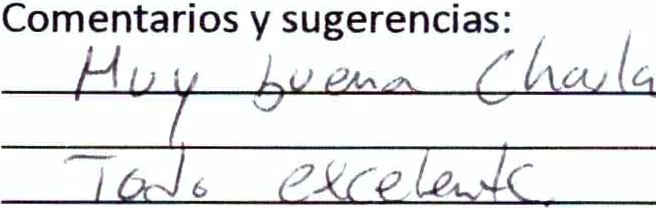 Comentarios y sugerencias:
Muy buena Charla
Todo excelente